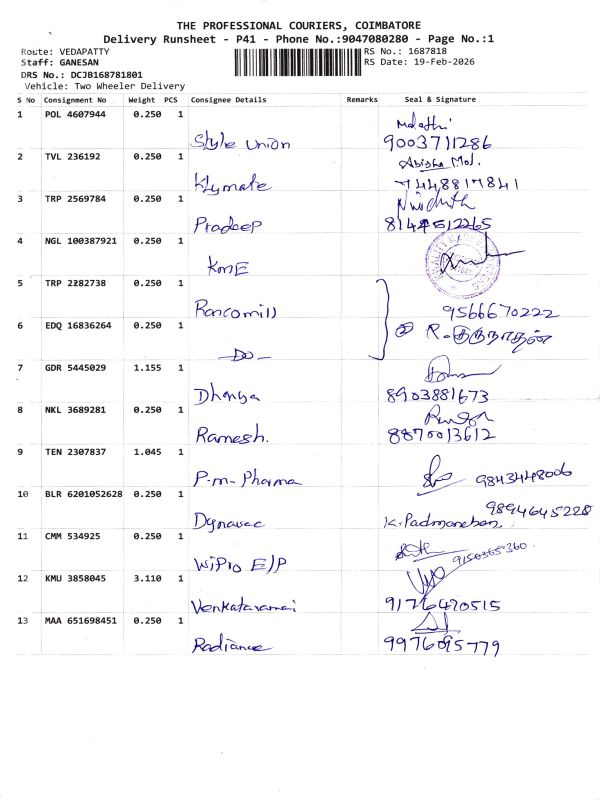 THE PROFESSIONAL COURIERS, COIMBATORE
Delivery Runsheet - P41 - Phone No.:9047080280 - Page No.:1
Route: VEDAPATTY
RS No.: 1687818
Staff: GANESAN
RS Date: 19-Feb-2026
DRS No.: DCJB168781801
Vehicle: Two Wheeler Delivery
S No Consignment No Weight PCS Consignee Details Remarks Seal & Signature
1 POL 4607944 0.250 1
Style union 9003711286
2 TVL 236192 0.250 1 Abisha Mol.
Klymate 7448817841
3 TRP 2569784 0.250 1
Pradeep 8144512265
4 NGL 100387921 0.250 1
KME
5 TRP 2282738 0.250 1
Rancomill 9566670222
6 EDQ 16836264 0.250 1
-Do-
7 GDR 5445029 1.155 1
Dhanya 8903881673
8 NKL 3689281 0.250 1
Ramesh. 8870013612
9 TEN 2307837 1.045 1
P.m- Pharma 9843448006
10 BLR 6201052628 0.250 1 9894645228
Dynavac K.Padmanaban
11 CMM 534925 0.250 1
Wipro E/P 9150365360.
12 KMU 3858045 3.110 1
Venkataramai 9176470515
13 MAA 651698451 0.250 1
Radiance 9976095779